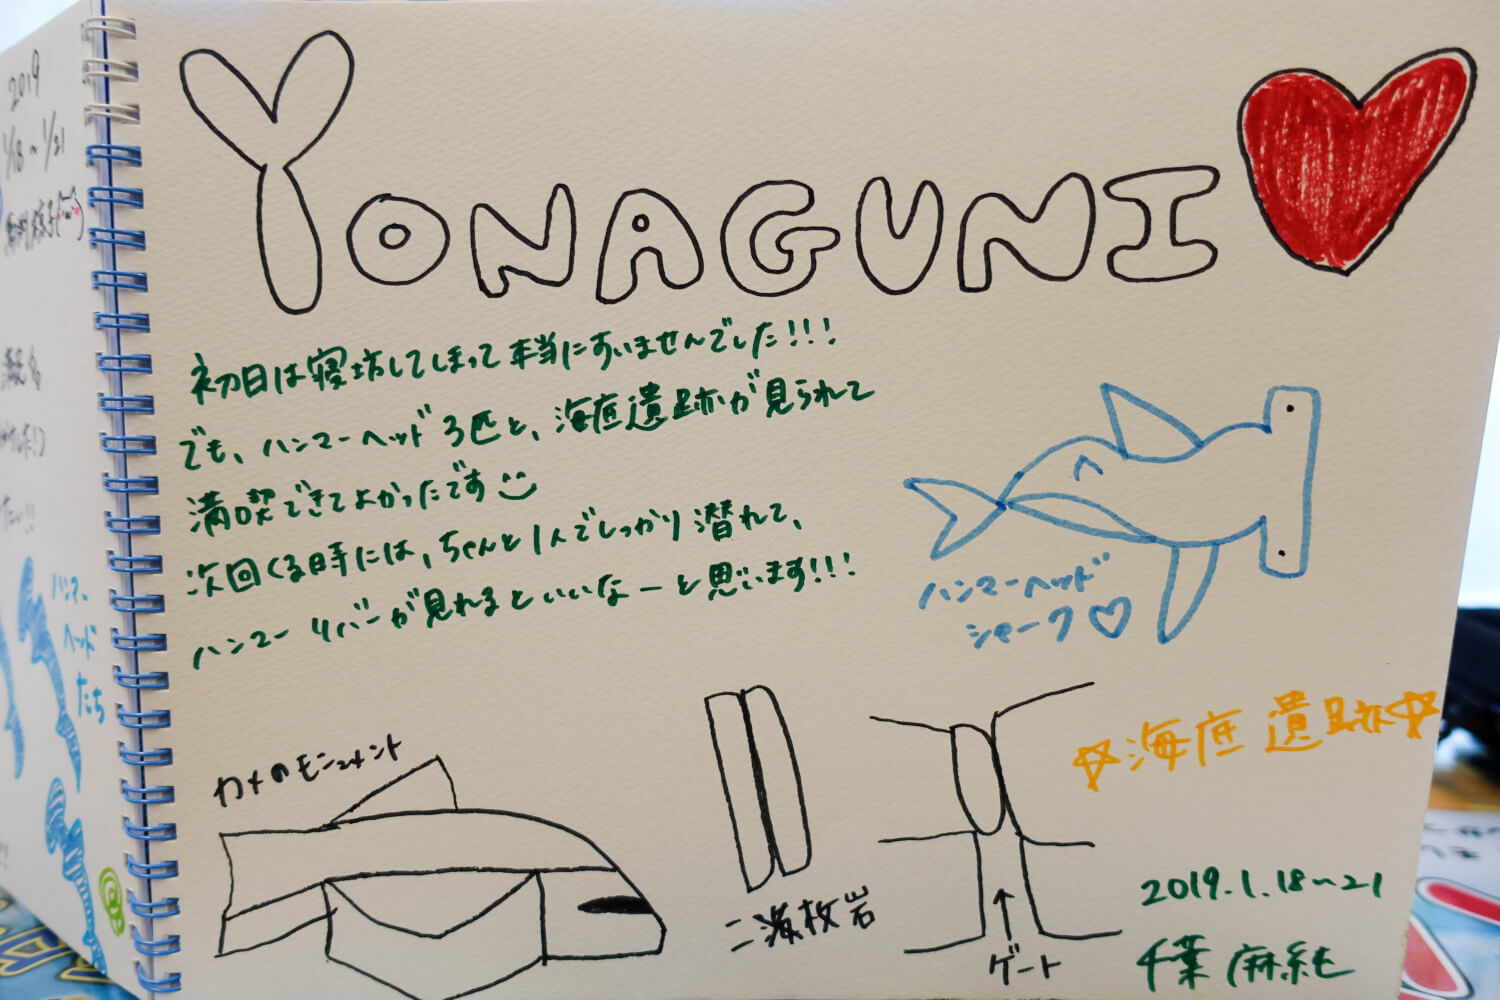 2019
1/18~1/21
ハンマー
ヘッド
たち
YONAGUNI
初日は寝坊してしまって本当にすいませんでした!!!
でも、ハンマーヘッド3匹と、海底遺跡が見られて
満喫できてよかったです
次回くる時には、ちゃんと1人でしっかり潜れて、
ハンマーリバーが見れるといいなーと思います!!!
ハンマーヘッド
シャーク♡
☆海底遺跡☆
カメのモニュメント
二枚岩
ゲート
2019.1.18~21
千葉 麻純